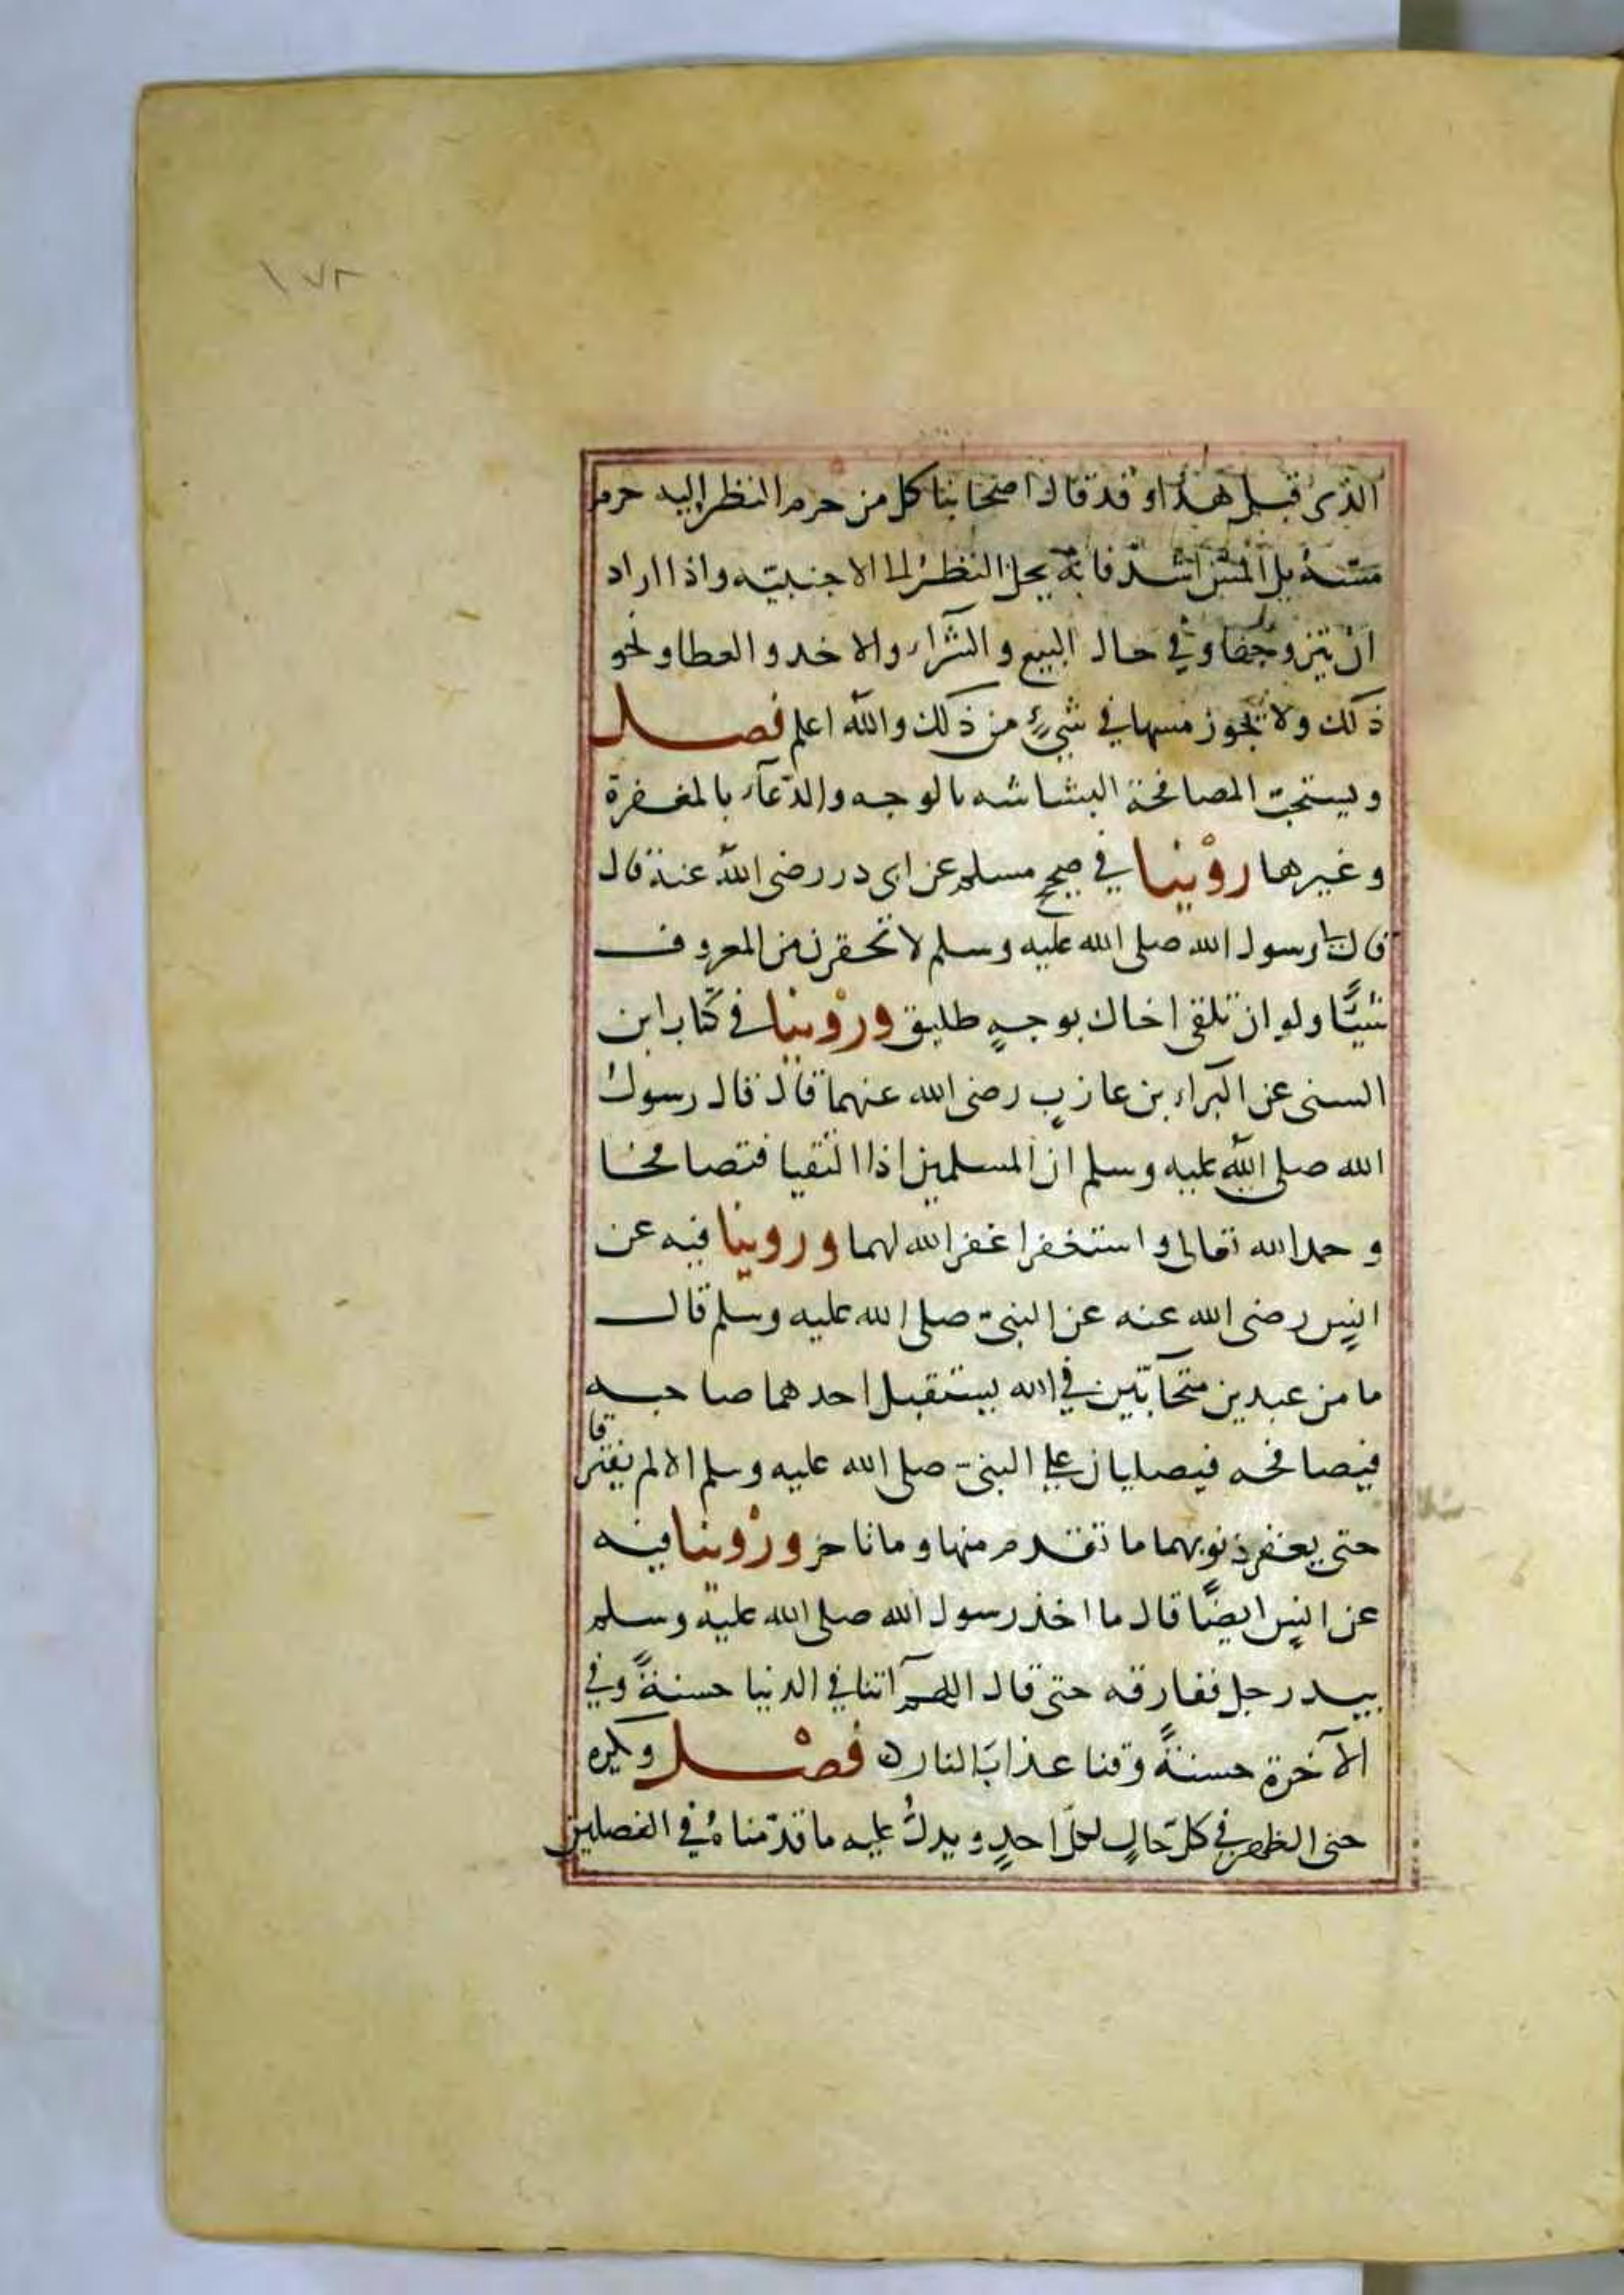 ١٧٨
الذى قبل هذا وقد قال اصحابنا كل من حرم النظر اليه حرم
مسّه بل المسّ اشدّ فانه يحل النظر الى الاجنبيّه واذا اراد
ان يتزوجها وفي حال البيع والشرآء والاخد والعطا ونحو
ذلك ولا يجوز مسها في شيءٍ من ذلك والله اعلم فصل
ويستحبّ المصافحة البشاشه بالوجه والدّعآء بالمغفرة
وغيرها روْينا في صحيح مسلم عن ابى در رضى الله عنه قال
قال لى رسول الله صلى الله عليه وسلم لا تحقرن من المعروف
شيئًا ولو ان تلقى اخاك بوجهٍ طليق وروْينا في كتاب ابن
السنى عن البراء بن عازبٍ رضى الله عنهما قال قال رسول
الله صلى الله عليه وسلم ان المسلمين اذا التقيا فتصافحا
وحمدا الله تعالى واستغفرا غفر الله لهما وروينا فيه عن
انسٍ رضى الله عنه عن النبىّ صلى الله عليه وسلم قال
ما من عبدين متحآبّين في الله يستقبل احدهما صاحبه
فيصافحه فيصليان على النبىّ صلى الله عليه وسلم الا لم يفترقا
حتى يغفر ذنوبهما ما تقدم منها وما تاخر وروْينا فيه
عن انسٍ ايضًا قال ما اخذ رسول الله صلى الله عليه وسلم
بيد رجل ففارقه حتى قال اللهم آتنا في الدنيا حسنةً وفي
الآخرة حسنةً وقنا عذابَ النار فصْل ويكره
حنى الظهر في كلّ حالٍ لكلّ احدٍ ويدلُ عليه ما قدّمناهُ في الفصلين